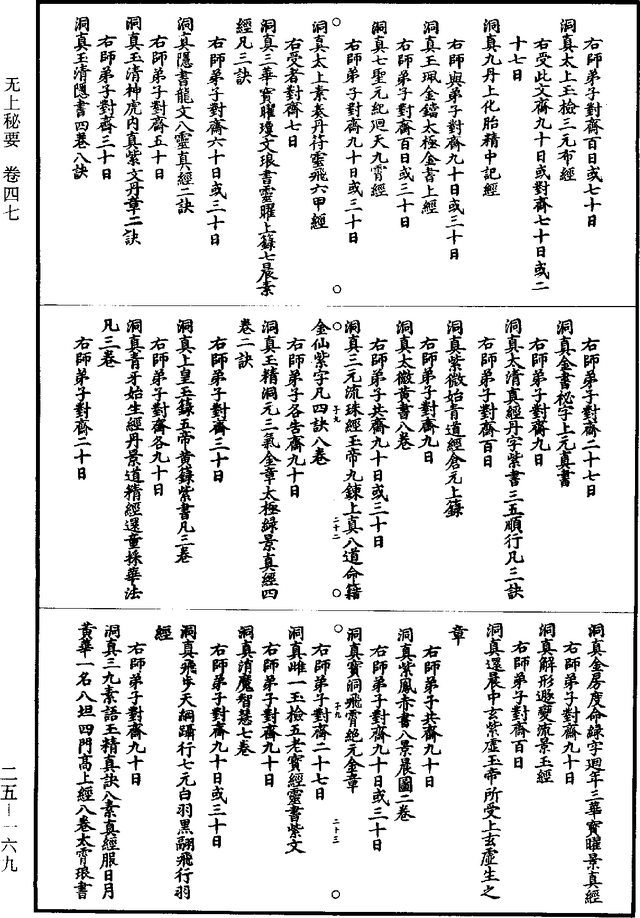 无上秘要 卷四七
右師弟子對齋百日或七十日
洞真太上玉檢三元布經
右受此文齋九十日或對齋七十日或二
十七日
洞真九丹上化胎精中記經
右師與弟子對齋九十日或三十日
洞真玉珮金鐺太極金書上經
右師弟子對齋百日或三十日
洞真七聖元紀迴天九霄經
右師弟子對齋九十日或三十日
洞真太上素奏丹符靈飛六甲經
右受者對齋七日
洞真三華寶曜瓊文琅書靈曜上籙七晨素
經凡三訣
右師弟子對齋六十日或三十日
洞真隱書龍文八靈真經二訣
右師弟子對齋五十日
洞真玉清神虎内真紫文丹章二訣
右師弟子對齋三十日
洞真玉清隱書四卷八訣
右師弟子對齋二十七日
洞真金書祕字上元真書
右師弟子對齋九日
洞真太清真經丹字紫書三五順行凡三訣
右師弟子對齋百日
洞真紫微始青道經倉元上籙
右師弟子對齋九日
洞真太微黃書八卷
右師弟子共齋九十日或三十日
洞真三元流珠經玉帝九鍊上真八道命籍
金仙紫字凡四訣八卷
右師弟子各告齋九十日
洞真玉精洞元三氣金章太極綠景真經四
卷二訣
右師弟子對齋三十日
洞真上皇玉錄五帝黃籙紫書凡三卷
右師弟子對齋各九十日
洞真青牙始生經丹景道精經還童採華法
凡三卷
右師弟子對齋二十日
洞真金房度命綠字迴年三華寶曜景真經
右師弟子對齋九十日
洞真解形遯變流景玉經
右師弟子對齋百日
洞真還晨中玄紫虛玉帝所受上玄虛生之
章
右師弟子共齋九十日
洞真紫鳳赤書八景晨圖二卷
右師弟子對齋九十日或三十日
洞真寶洞飛霄絕元金章
右師弟子對齋二十七日
洞真雌一玉檢五老寶經靈書紫文
右師弟子對齋九十日
洞真消魔智慧七卷
右師弟子對齋九十日或三十日
洞真飛步天綱躡行七元白羽黑翮飛行羽
經
右師弟子對齋九十日
洞真三九素語玉精真訣八素真經服日月
黃華一名八坦四門高上經八卷太霄琅書
二五－一六九